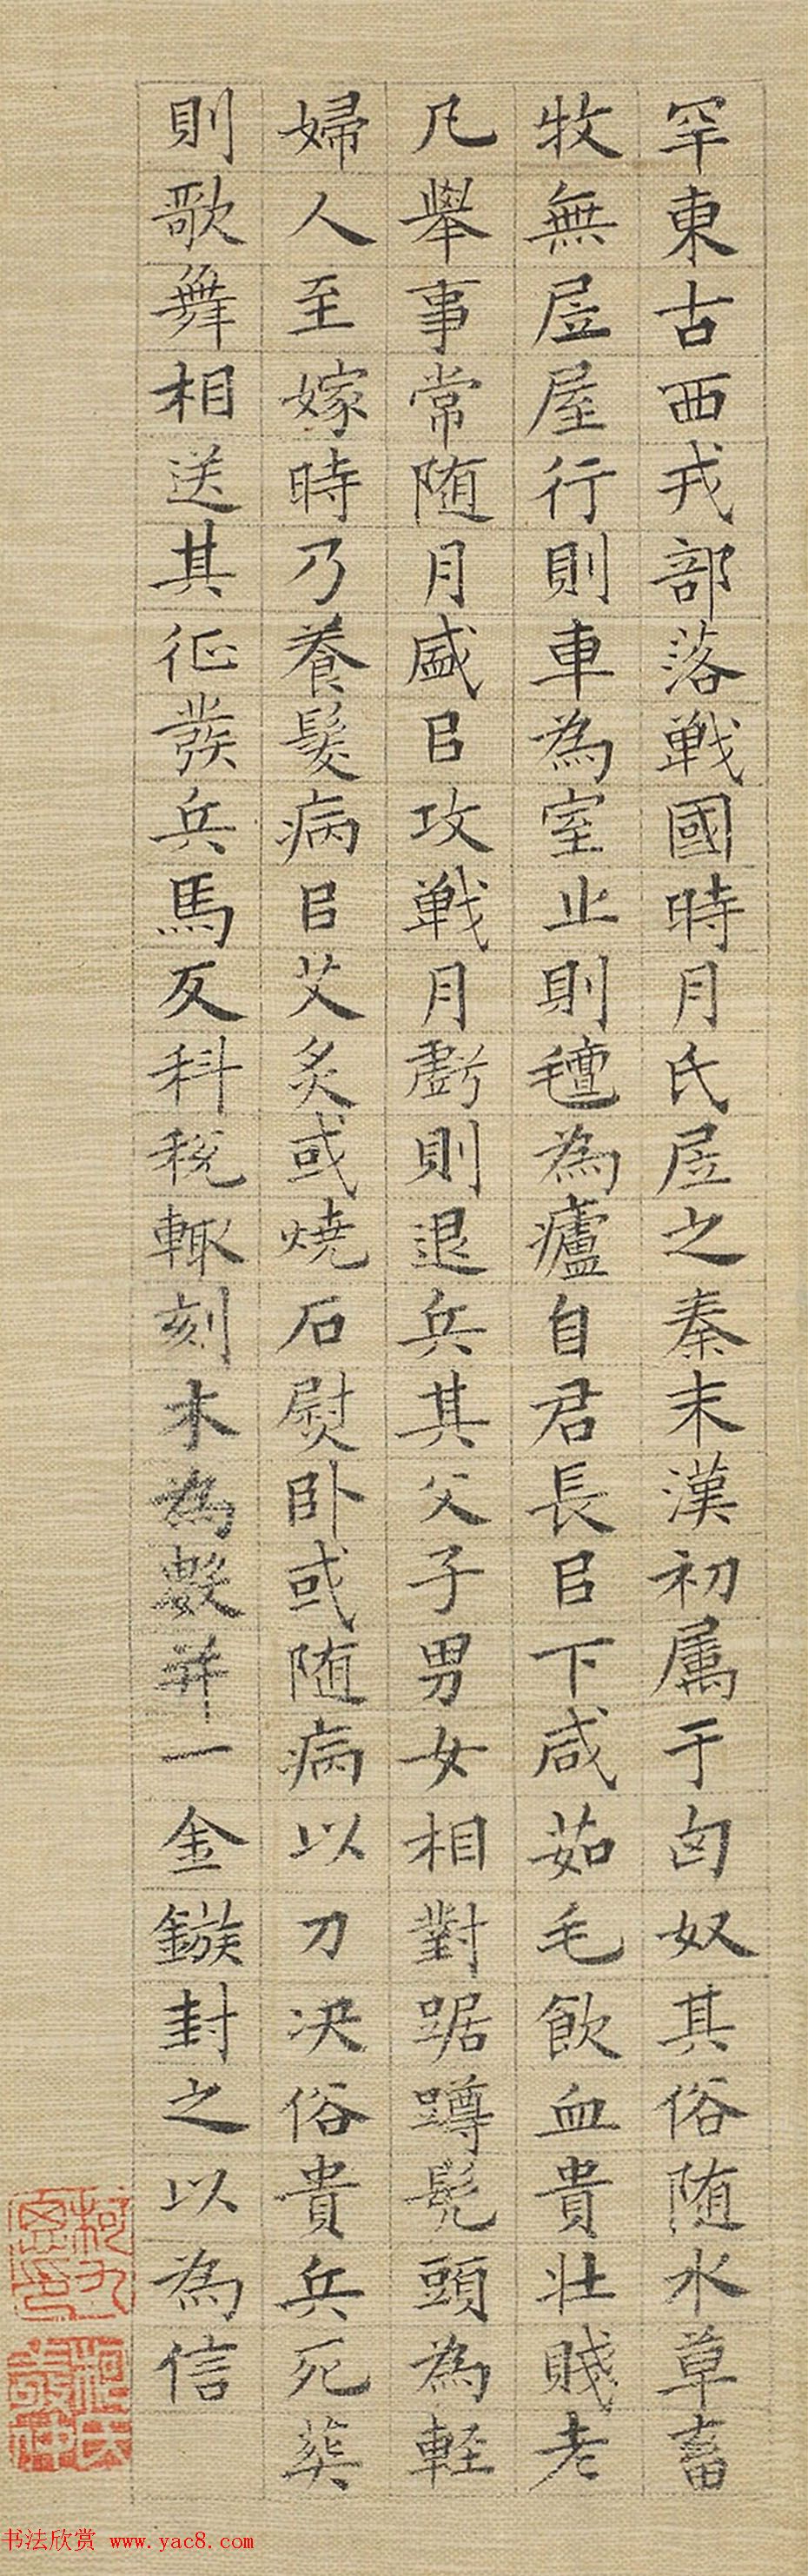 罕東古西戎部落戰國時月氏㞐之秦末漢初属于匈奴其俗随水草畜
牧無㞐屋行則車為室止則氊為廬自君長㠯下咸茹毛飲血貴壯賤老
凡舉事常随月盛㠯攻戰月虧則退兵其父子男女相對踞蹲髡頭為輕
婦人至嫁時乃養髮病㠯艾炙或燒石熨卧或随病以刀决俗貴兵死葬
則歌舞相送其征發兵馬及科稅輙刻木為數并一金鏃封之以為信
柯九思印
书法欣赏 www.yac8.com